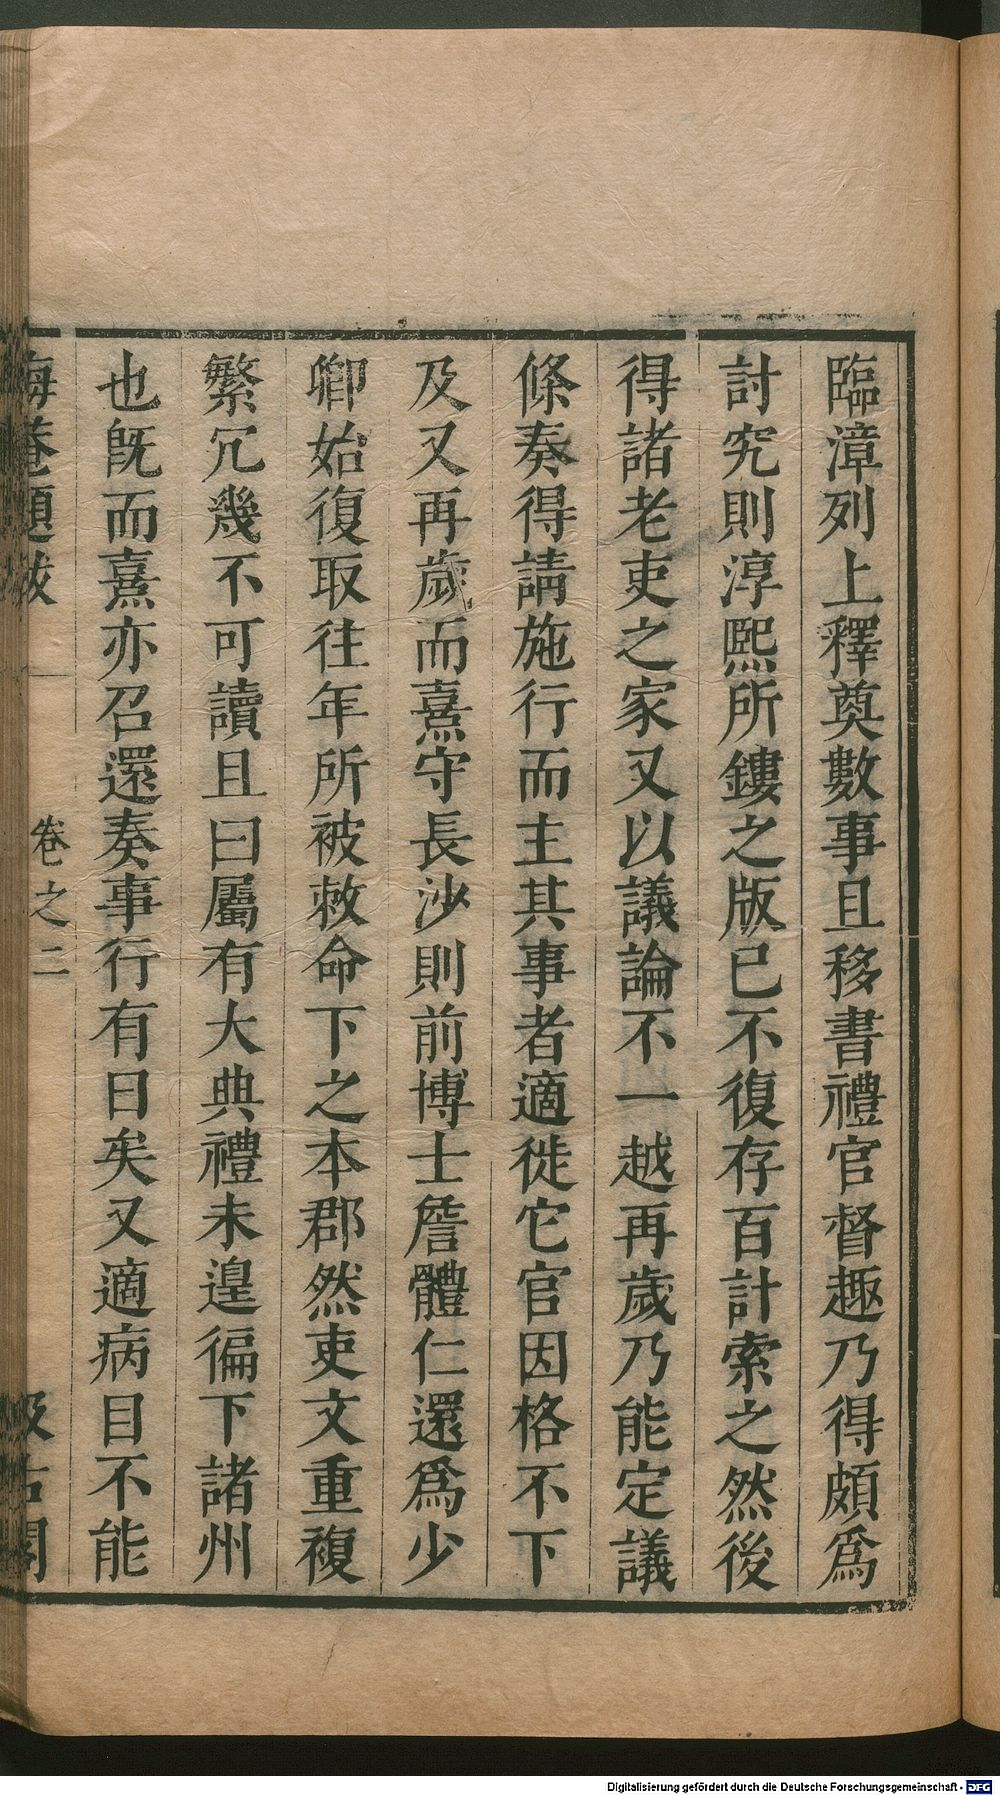 臨漳列上釋奠數事且移書禮官督趣乃得頗爲
討究則淳熙所鏤之版已不復存百計索之然後
得諸老吏之家又以議論不一越再歲乃能定議
條奏得請施行而主其事者適徙它官因格不下
及又再歲而熹守長沙則前博士詹體仁還爲少
卿始復取往年所被敕命下之本郡然吏文重複
繁冗幾不可讀且曰屬有大典禮未遑徧下諸州
也旣而熹亦召還奏事行有日矣又適病目不能
晦菴題跋 卷之二 汲古閣
Digitalisierung gefördert durch die Deutsche Forschungsgemeinschaft - DFG